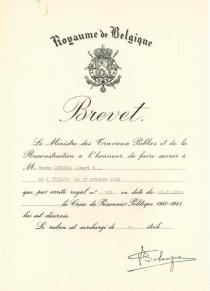 Royaume de Belgique
Brevet.
Le Ministre des Travaux Publics et de la
Reconstruction a l'honneur de faire savoir à
M.
né à le octobre
que, par arrêté royal n° en date du
la Croix du Prisonnier Politique 1940-1945
lui est décernée.
Le ruban est surchargé de étoile